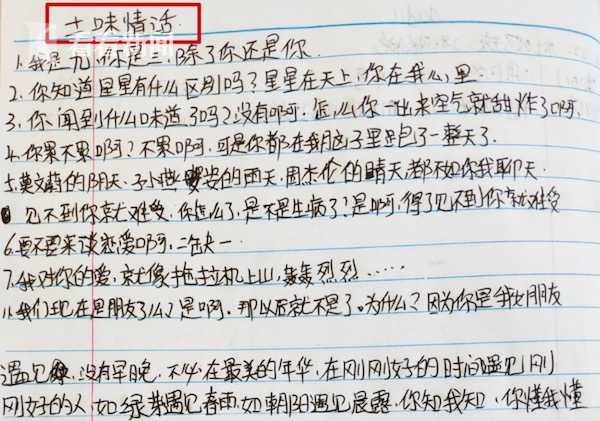 土味情话
看看新闻
1.我是九,你是三,除了你还是你.
2.你知道星星有什么区别吗?星星在天上,你在我心里.
3.你闻到什么味道了吗?没有啊.怎么你一出来空气就甜炸了啊.
4.你累不累啊?不累啊.可是你都在我脑子里跑了一整天了.
5.莫文蔚的阴天.孙燕姿的雨天.周杰伦的晴天都不如你我聊天.
见不到你就难受.你怎么了,是不是生病了?是啊,得了见不到你就难受
6.要不要来谈恋爱啊,二缺一.
7.我对你的爱,就像拖拉机上山,轰轰烈烈.....
11.我们现在是朋友了么?是啊.那以后就不是了.为什么?因为你是我女朋友
遇见 没有早晚,不必在最美的年华,在刚刚好的时间遇见刚
刚好的人,如绿茶遇见春雨,如朝阳遇见晨露.你知我知,你懂我懂